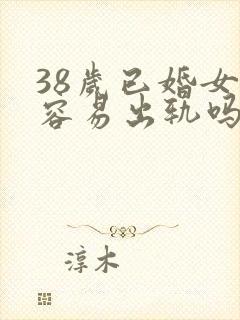 38岁已婚女
容易出轨吗
淳木